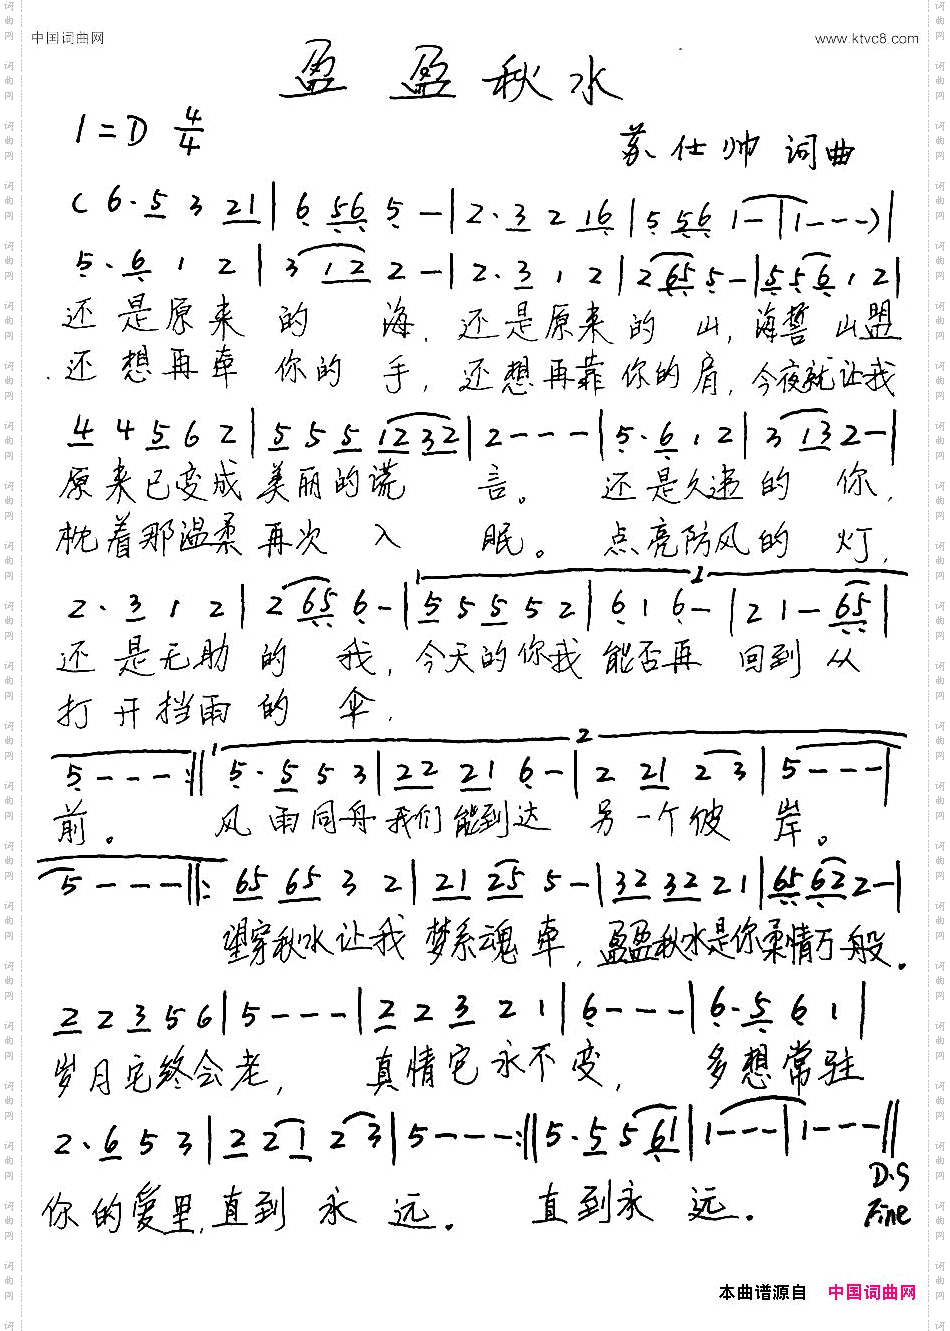 中国词曲网
www.ktvc8.com
盈盈秋水
1=D 4/4
苏仕帅 词曲
(6·5 3 21|6 56 5 -|2·3 2 16|5 56 1-|1---)|
5·6 1 2|3 12 2 -|2·3 1 2|2 65 5-|5 5 6 1 2|
还是原来的 海,还是原来的 山,海誓山盟
还想再牵你的手,还想再靠你的肩,今夜就让我
4 4 5 6 2|5 5 5 12 32|2---|5·6 1 2|3 13 2-|
原来已变成美丽的谎 言。 还是久违的 你,
枕着那温柔再次 入 眠。 点亮防风的 灯,
2·3 1 2|2 65 6-|5 5 5 5 2|6 1 6-|2 1-65|
还是无助的 我,今天的你我能否再 回到从
打开挡雨的 伞.
5---:‖5·5 5 3|22 21 6-|2 21 2 3|5---|
前。 风雨同舟我们能到达 另一个彼 岸。
5---‖:65 65 3 2|21 25 5-|32 32 2 1|65 62 2-|
望穿秋水让我 梦系魂牵,盈盈秋水是你柔情万般。
2 2 3 5 6|5---|2 2 3 2 1|6---|6·5 6 1|
岁月它终会老, 真情它永不变, 多想常驻
2·6 5 3|2 2 1 2 3|5---:‖5·5 5 61|1---|1---‖
D.S
你的爱里,直到 永 远。 直到永 远。
Fine
本曲谱源自 中国词曲网